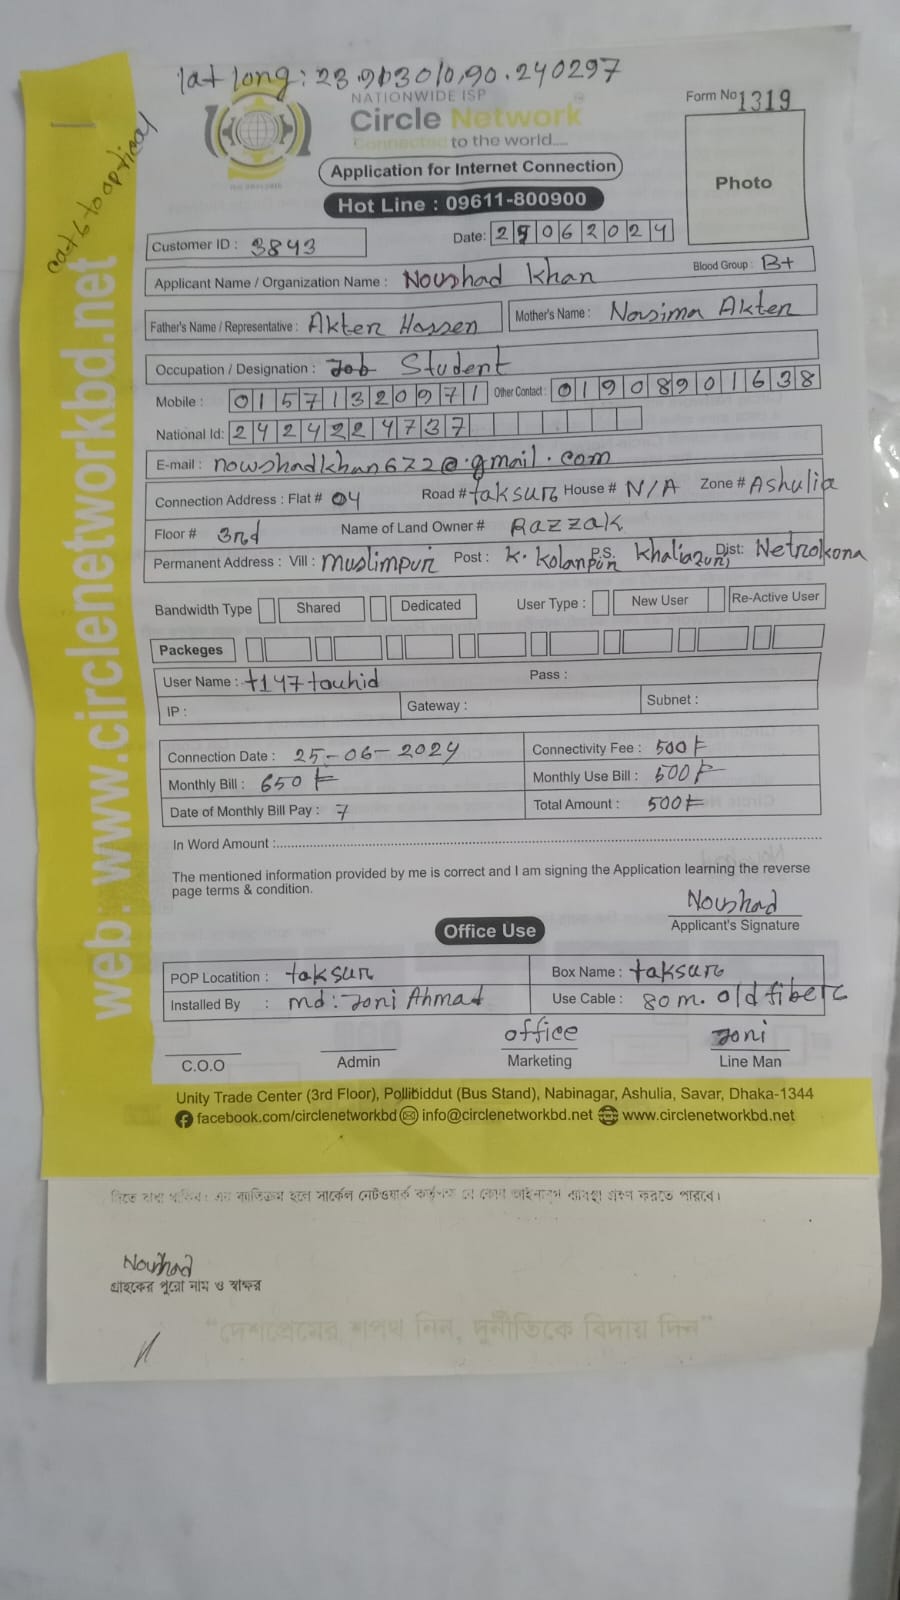 lat long: 23.913010,90.240297
cat6 to optical
NATIONWIDE ISP
Circle Network
Connected to the world....
Form No 1319
Application for Internet Connection
Photo
Hot Line : 09611-800900
Customer ID : 3843
Date: 25062024
Applicant Name / Organization Name : Noushad Khan
Blood Group : B+
Father's Name / Representative : Akter Hossen
Mother's Name : Nasima Akter
Occupation / Designation : Job Student
Mobile : 01571320971
Other Contact : 01908901638
National Id: 2424224737
E-mail : nowshadkhan672@.gmail.com
Connection Address : Flat # 04 Road # taksur House # N/A Zone # Ashulia
Floor # 3rd Name of Land Owner # Razzak
Permanent Address : Vill : Muslimpur Post : K. Kolanpur P.S. Khaliazuri Dist: Netrokona
Bandwidth Type Shared Dedicated User Type : New User Re-Active User
Packeges
User Name : t147touhid Pass :
IP : Gateway : Subnet :
Connection Date : 25-06-2024 Connectivity Fee : 500৳
Monthly Bill : 650৳ Monthly Use Bill : 500৳
Date of Monthly Bill Pay : 7 Total Amount : 500৳
In Word Amount :
The mentioned information provided by me is correct and I am signing the Application learning the reverse
page terms & condition.
Noushad
Applicant's Signature
Office Use
POP Locatition : taksur Box Name : taksur
Installed By : md: Joni Ahmad Use Cable : 80 m. old fiber
C.O.O
Admin
office
Marketing
Joni
Line Man
web: www.circlenetworkbd.net
Unity Trade Center (3rd Floor), Pollibiddut (Bus Stand), Nabinagar, Ashulia, Savar, Dhaka-1344
facebook.com/circlenetworkbd info@circlenetworkbd.net www.circlenetworkbd.net
হলে সার্কেল নেটওয়ার্ক কর্তৃপক্ষ যে কোন আইনানুগ ব্যবস্থা গ্রহণ করতে পারবে।
Noushad
গ্রাহকের পুরো নাম ও স্বাক্ষর
"দেশপ্রেমের শপথ নিন, দুর্নীতিকে বিদায় দিন"